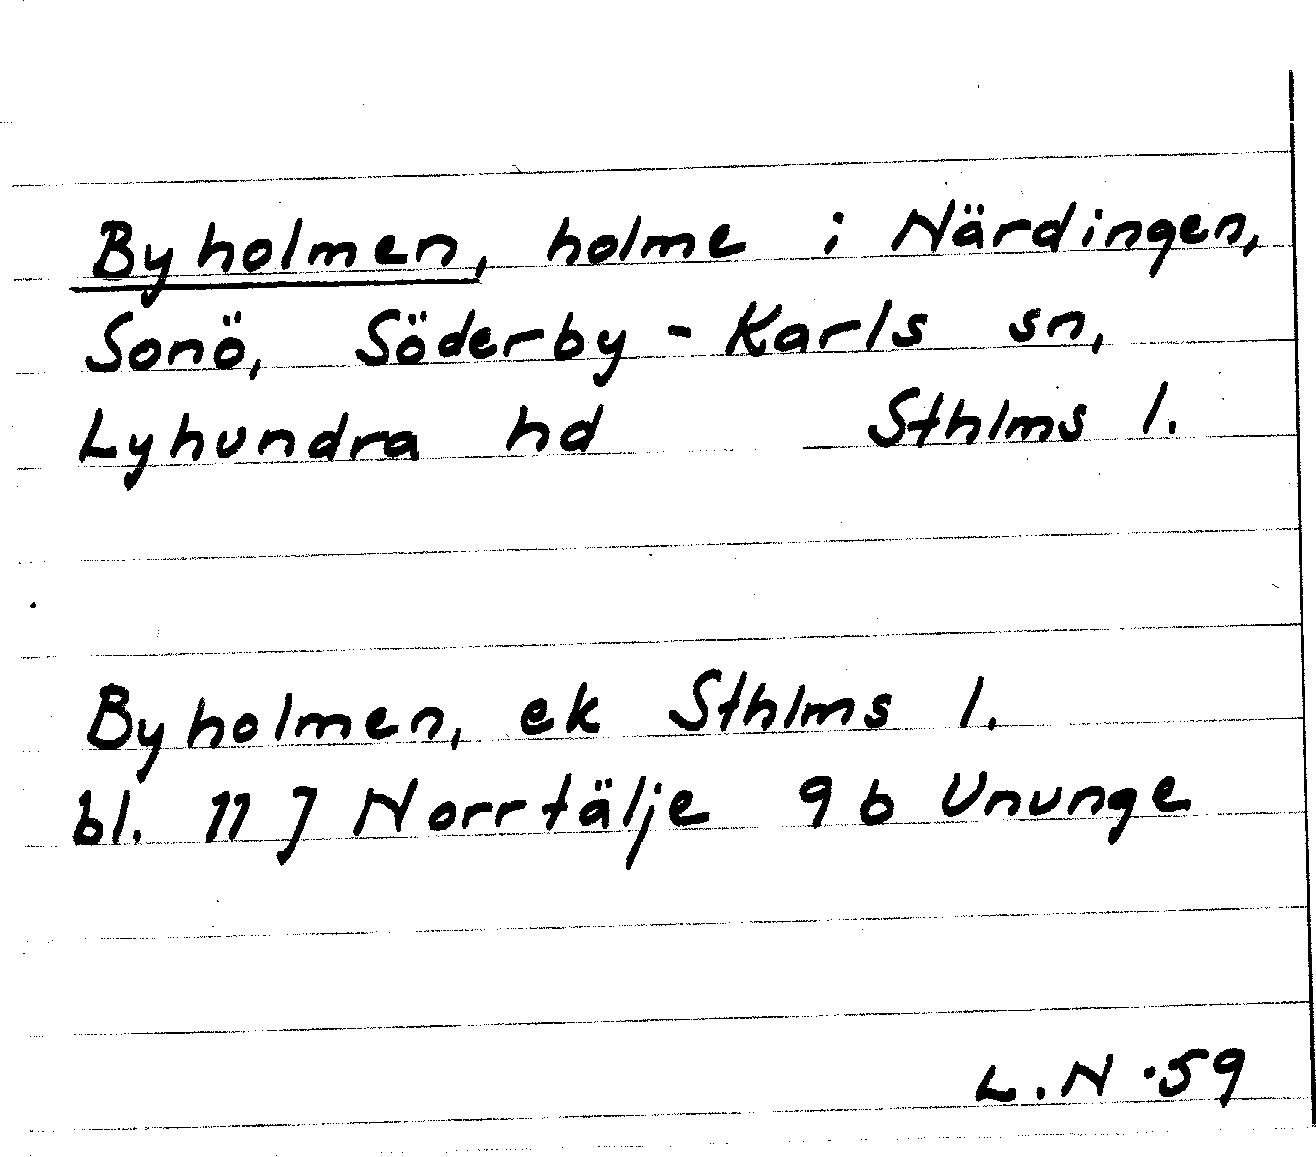 Byholmen, holme i Närdingen,
Sonö, Söderby-Karls sn,
Lyhundra hd Sthlms l.
Byholmen, ek Sthlms l.
bl. 11 J Norrtälje 9 b Ununge
L.N.59